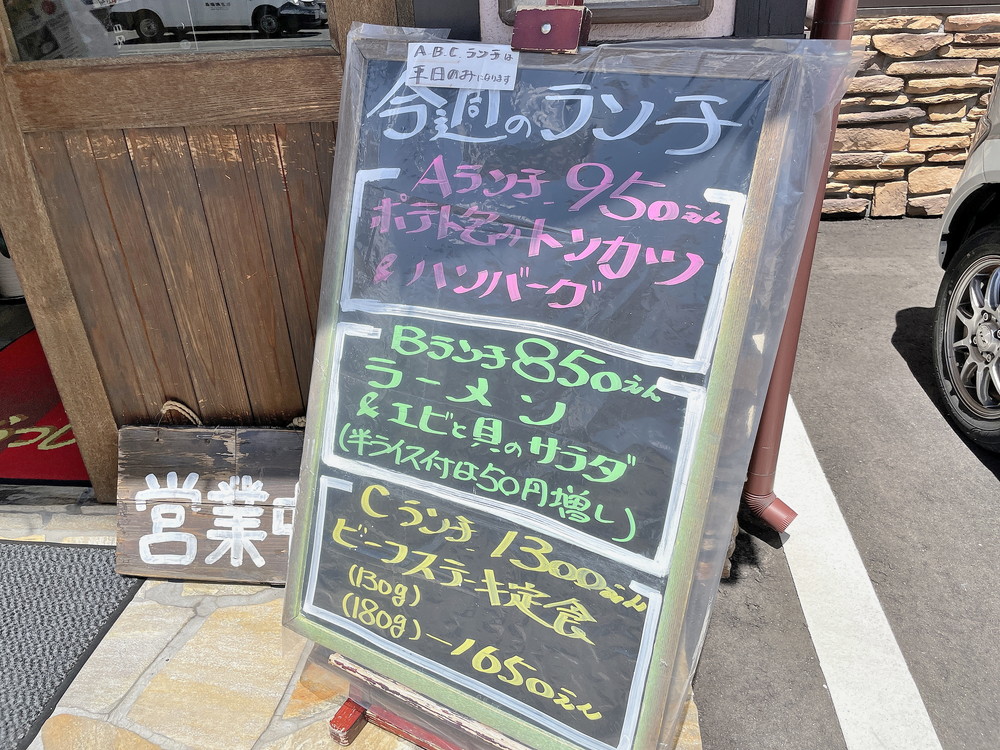 A.B.C.ランチは
平日のみになります
今週のランチ
Aランチ 950えん
ポテト包みトンカツ
& ハンバーグ
Bランチ 850えん
ラーメン
& エビと貝のサラダ
(半ライス付は50円増し)
Cランチ 1300えん
ビーフステーキ定食
(130g)
(180g)―1650えん
営業中